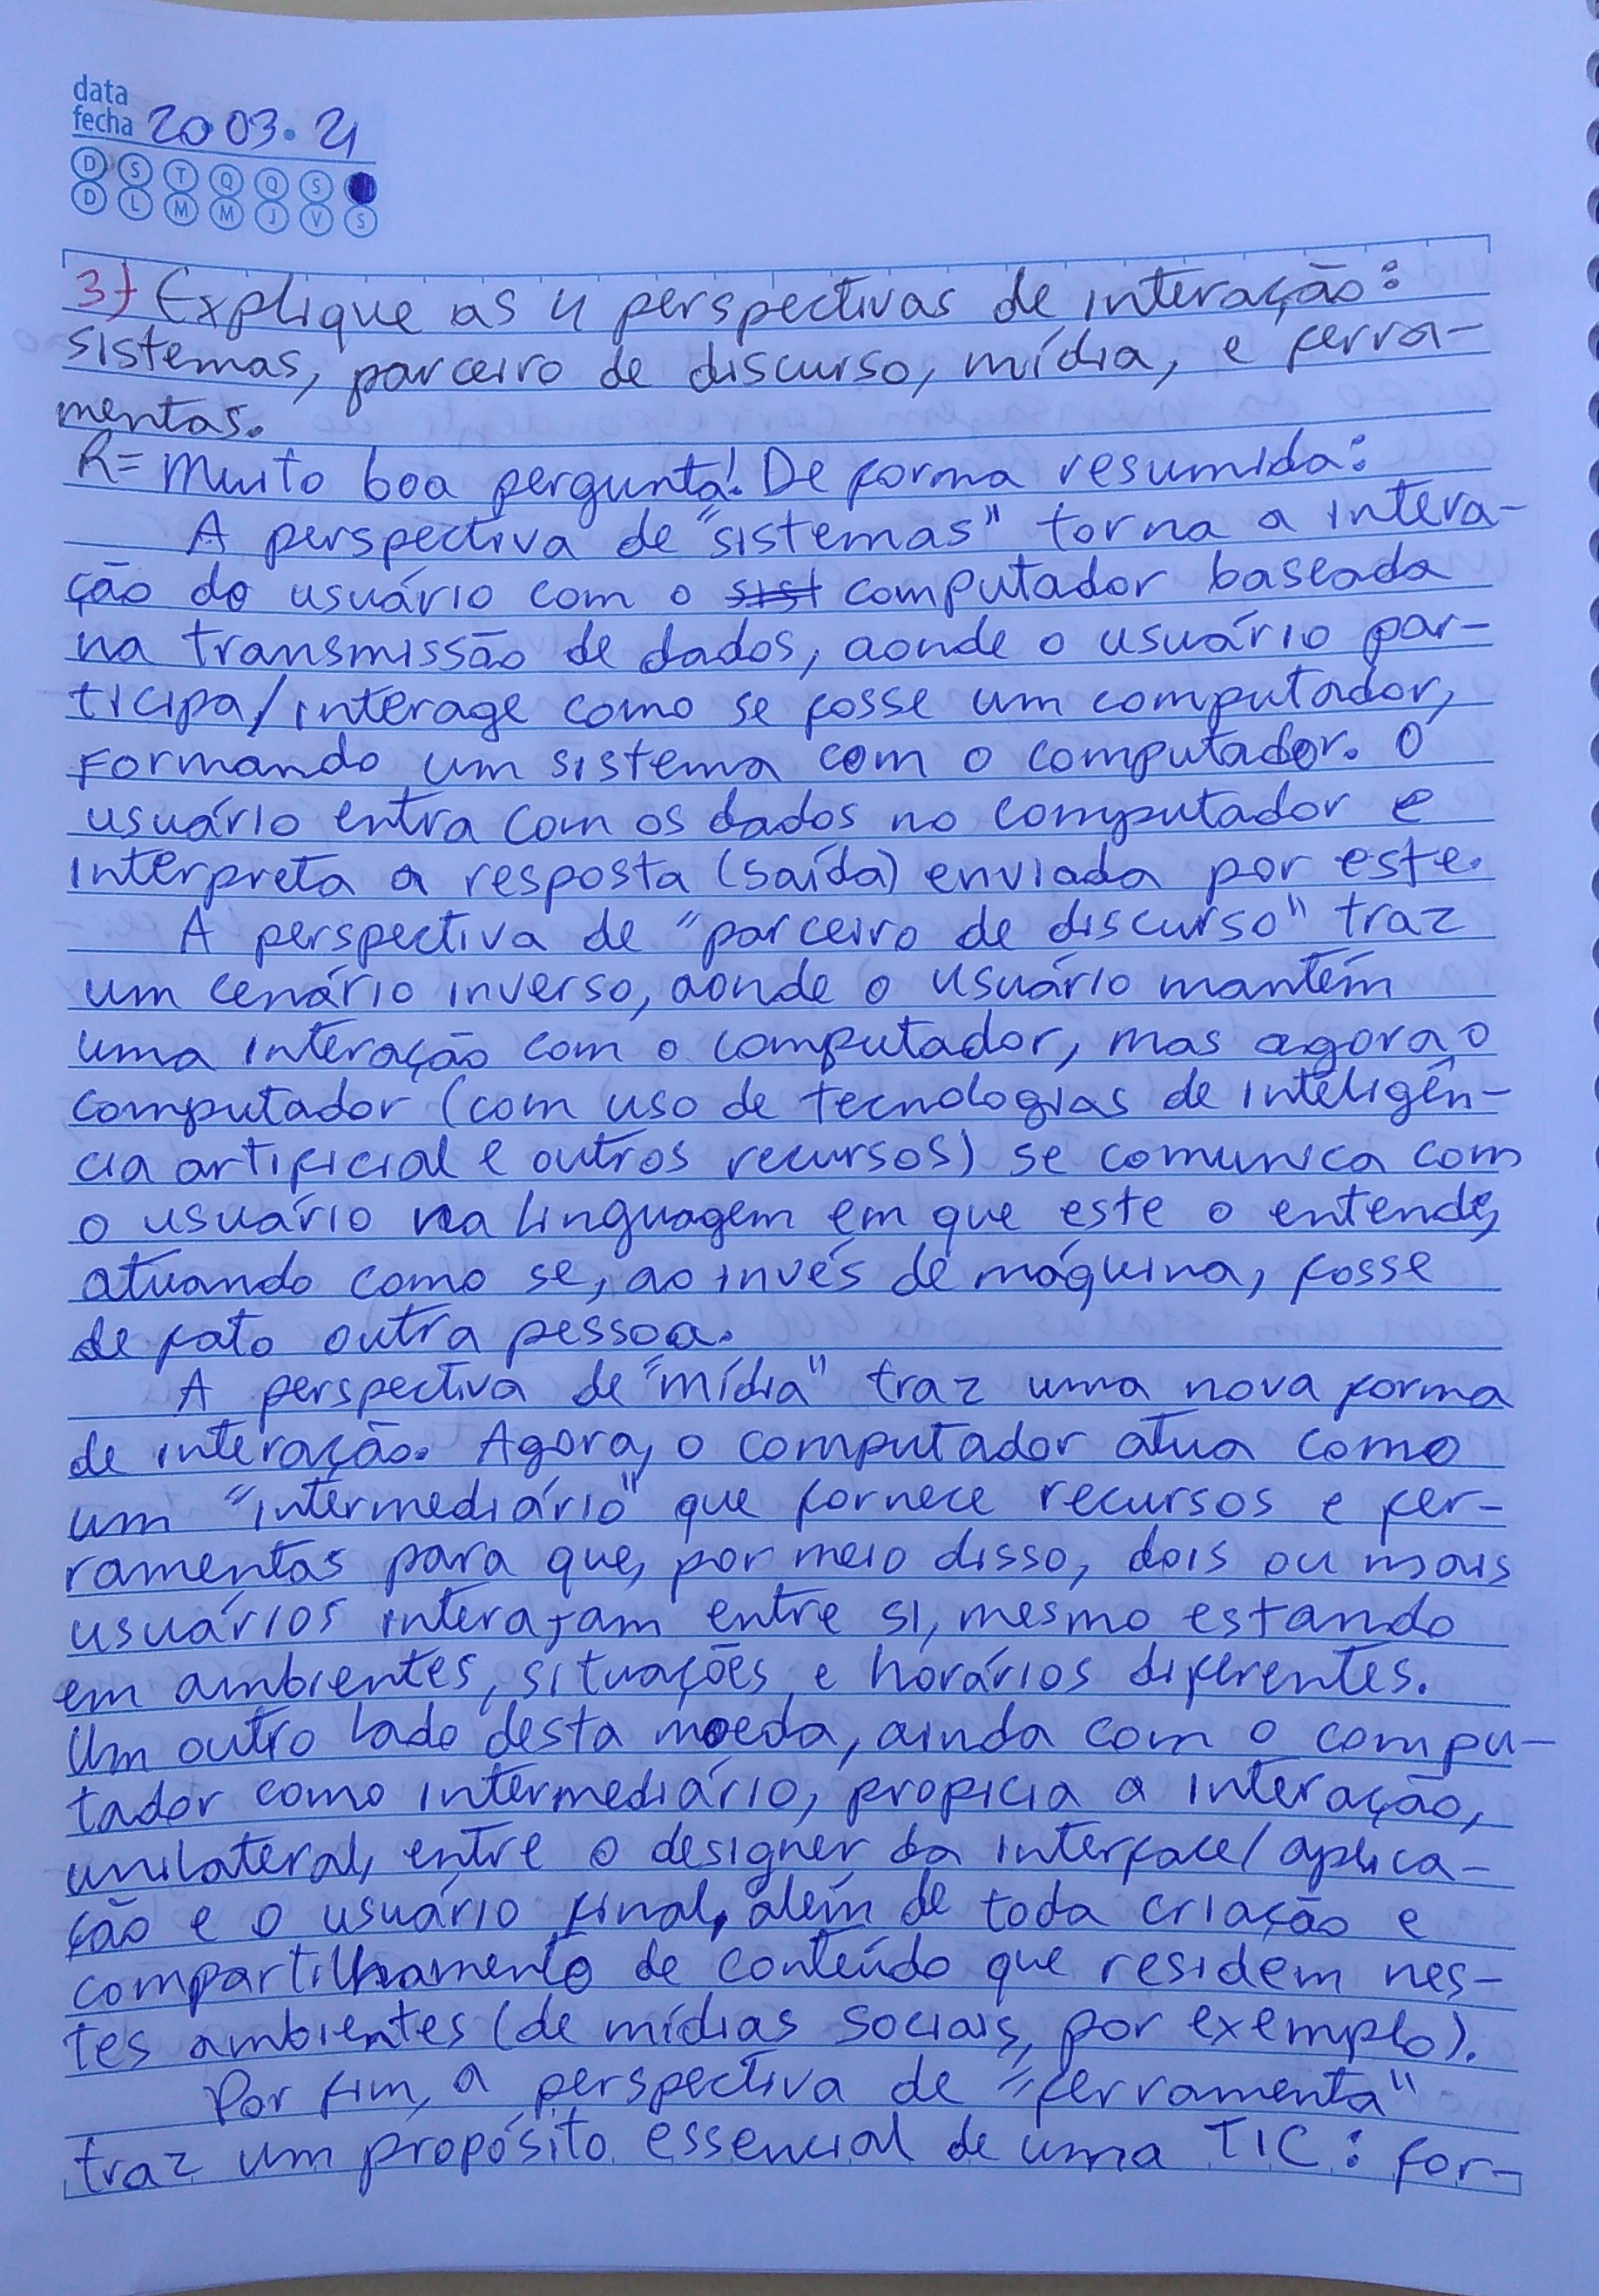 data
fecha 20.03.21
D S T Q Q S
D L M M J V S
3) Explique as 4 perspectivas de interação:
sistemas, parceiro de discurso, mídia, e ferra-
mentas.
R= Muito boa pergunta! De forma resumida:
A perspectiva de "sistemas" torna a intera-
ção do usuário com o sist computador baseada
na transmissão de dados, aonde o usuário par-
ticipa/interage como se fosse um computador,
formando um sistema com o computador. O
usuário entra com os dados no computador e
interpreta a resposta (saída) enviada por este.
A perspectiva de "parceiro de discurso" traz
um cenário inverso, aonde o usuário mantém
uma interação com o computador, mas agora o
computador (com uso de tecnologias de inteligên-
cia artificial e outros recursos) se comunica com
o usuário na linguagem em que este o entende,
atuando como se, ao invés de máquina, fosse
de fato outra pessoa.
A perspectiva de "mídia" traz uma nova forma
de interação. Agora, o computador atua como
um "intermediário" que fornece recursos e fer-
ramentas para que, por meio disso, dois ou mais
usuários interajam entre si, mesmo estando
em ambientes, situações e horários diferentes.
Um outro lado desta moeda, ainda com o compu-
tador como intermediário, propicia a interação,
unilateral, entre o designer da interface/aplica-
ção e o usuário final, além de toda criação e
compartilhamento de conteúdo que residem nes-
tes ambientes (de mídias sociais, por exemplo).
Por fim, a perspectiva de "ferramenta"
traz um propósito essencial de uma TIC: for-